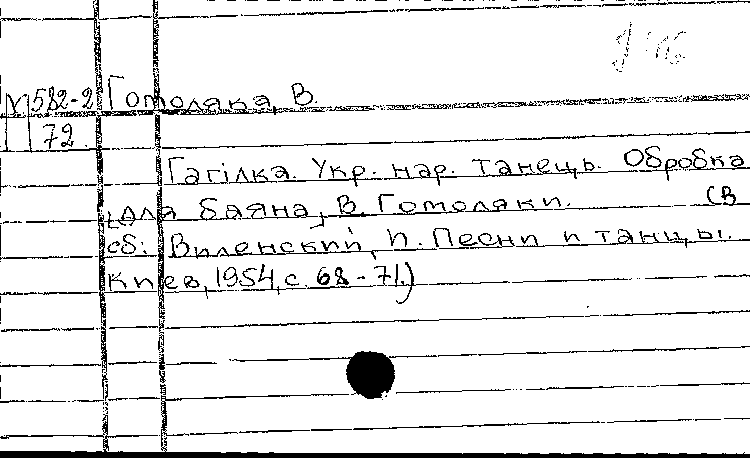 М582-2 Готоляка, В.
72.
Гагілка. Укр. нар. танець. Обробка
для баяна, В. Готоляки. (В
сб: Виленский, И. Песни и танцы.
Киев, 1954, с. 68-71.)